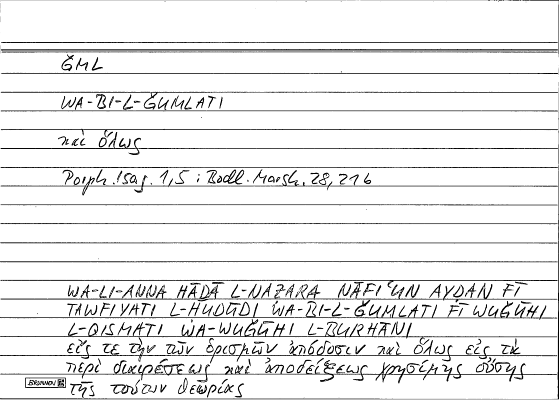 ǦML
WA-BI-L-ǦUMLATI
καὶ ὅλως
Porph. Isag. 1,5 : Bodl. Marsh. 28, 21 b
WA-LI-ANNA HĀḎĀ L-NAẒARA NĀFIʿUN AYḌAN FĪ
TAWFIYATI L-ḤUDŪDI WA-BI-L-ǦUMLATI FĪ WUǦŪHI
L-QISMATI WA-WUǦŪHI L-BURHĀNI
εἴς τε τὴν τῶν ὁρισμῶν ἀπόδοσιν καὶ ὅλως εἰς τὰ
περὶ διαιρέσεως καὶ ἀποδείξεως χρησίμης οὔσης
BRUNNEN τῆς τούτων θεωρίας